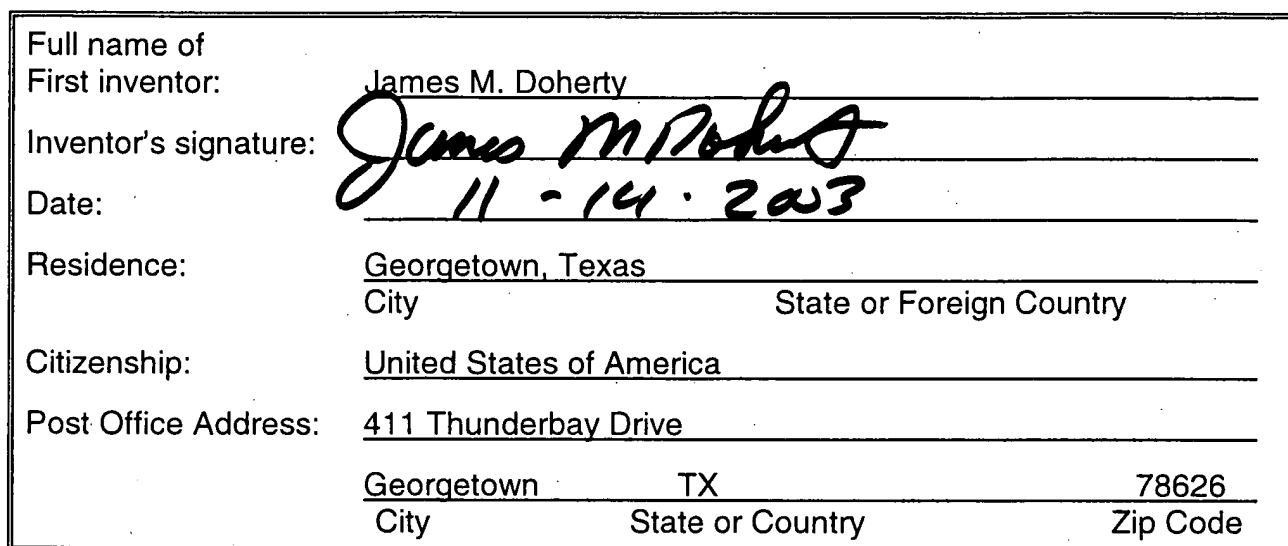 Full name of
First inventor: James M. Doherty
Inventor's signature: James M Doherty
Date: 11 - 14 . 2003
Residence: Georgetown, Texas
City State or Foreign Country
Citizenship: United States of America
Post Office Address: 411 Thunderbay Drive
Georgetown TX 78626
City State or Country Zip Code